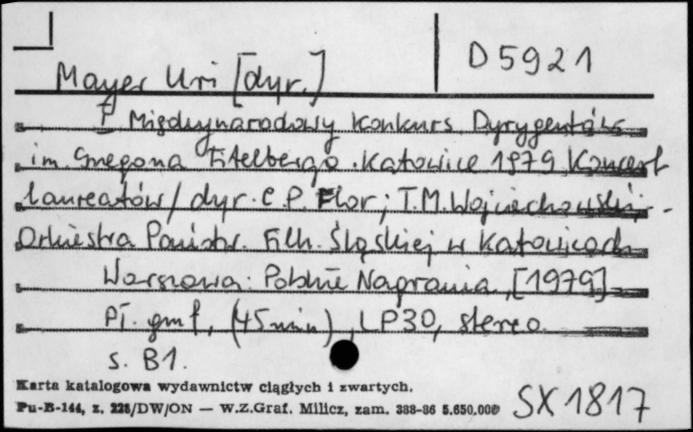 D 5921
Mayer Uri [dyr.]
I Międzynarodowy Konkurs Dyrygentów
im. Grzegorza Fitelberga. Katowice 1979 Koncert
laureatów / dyr. C. P. Flor; T.M. Wojciechowski; -
Orkiestra Państw. Filh. Śląskiej w Katowicach
Warszawa: Polskie Nagrania, [1979]
Pł. gmf, (45 min), LP30, stereo
s. B1.
Karta katalogowa wydawnictw ciągłych i zwartych.
Pu-B-144, z. 228/DW/ON — W.Z.Graf. Milicz, zam. 388-86 5.650.000
SX 1817